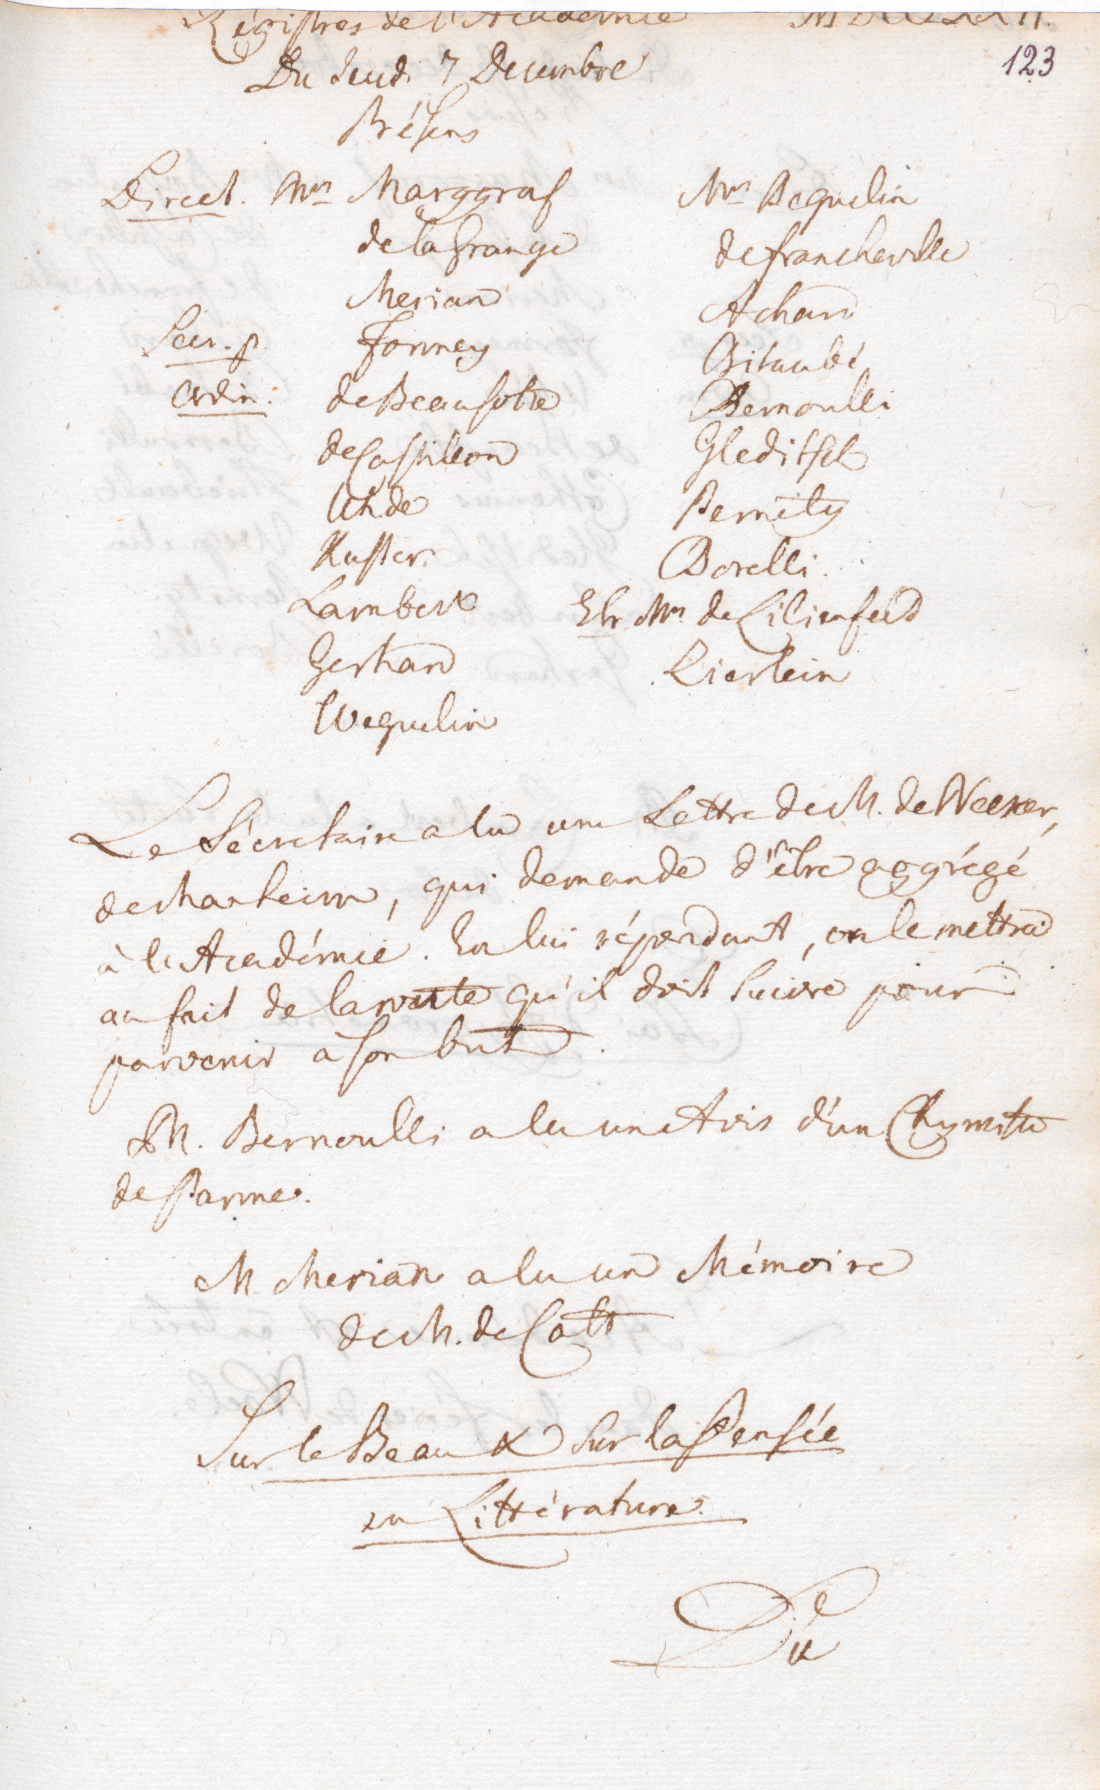 Régistres de l'Academie
123
Du Jeudi 7 Decembre
Présens
Direct. Mrs Marggraf
de la Grange
Merian
Secr. p. Formey
Ordin. de Beausobre
de Castillon
Uhde
Kuster.
Lambert
Gerhard
Weguelin
Mrs Beguelin
de francheville
Achard
Bitaubé
Bernoulli
Gleditsch
Pernety
Borelli.
Etr. Mrs de Lilienfeld
Lierlein
Le Sécrétaire a lu une Lettre de M. de Necker,
de Manheim, qui demande d'être aggrégé
à l'Académie. En lui répondant, on le mettra
au fait de la route qu'il doit suivre pour
parvenir a son but.
M. Bernoulli a lu un Avis d'un Chymiste
de Parme.
M. Merian a lu un Mémoire
de M. de Catt
Sur le Beau & sur la Pensée
en Littérature.
Du